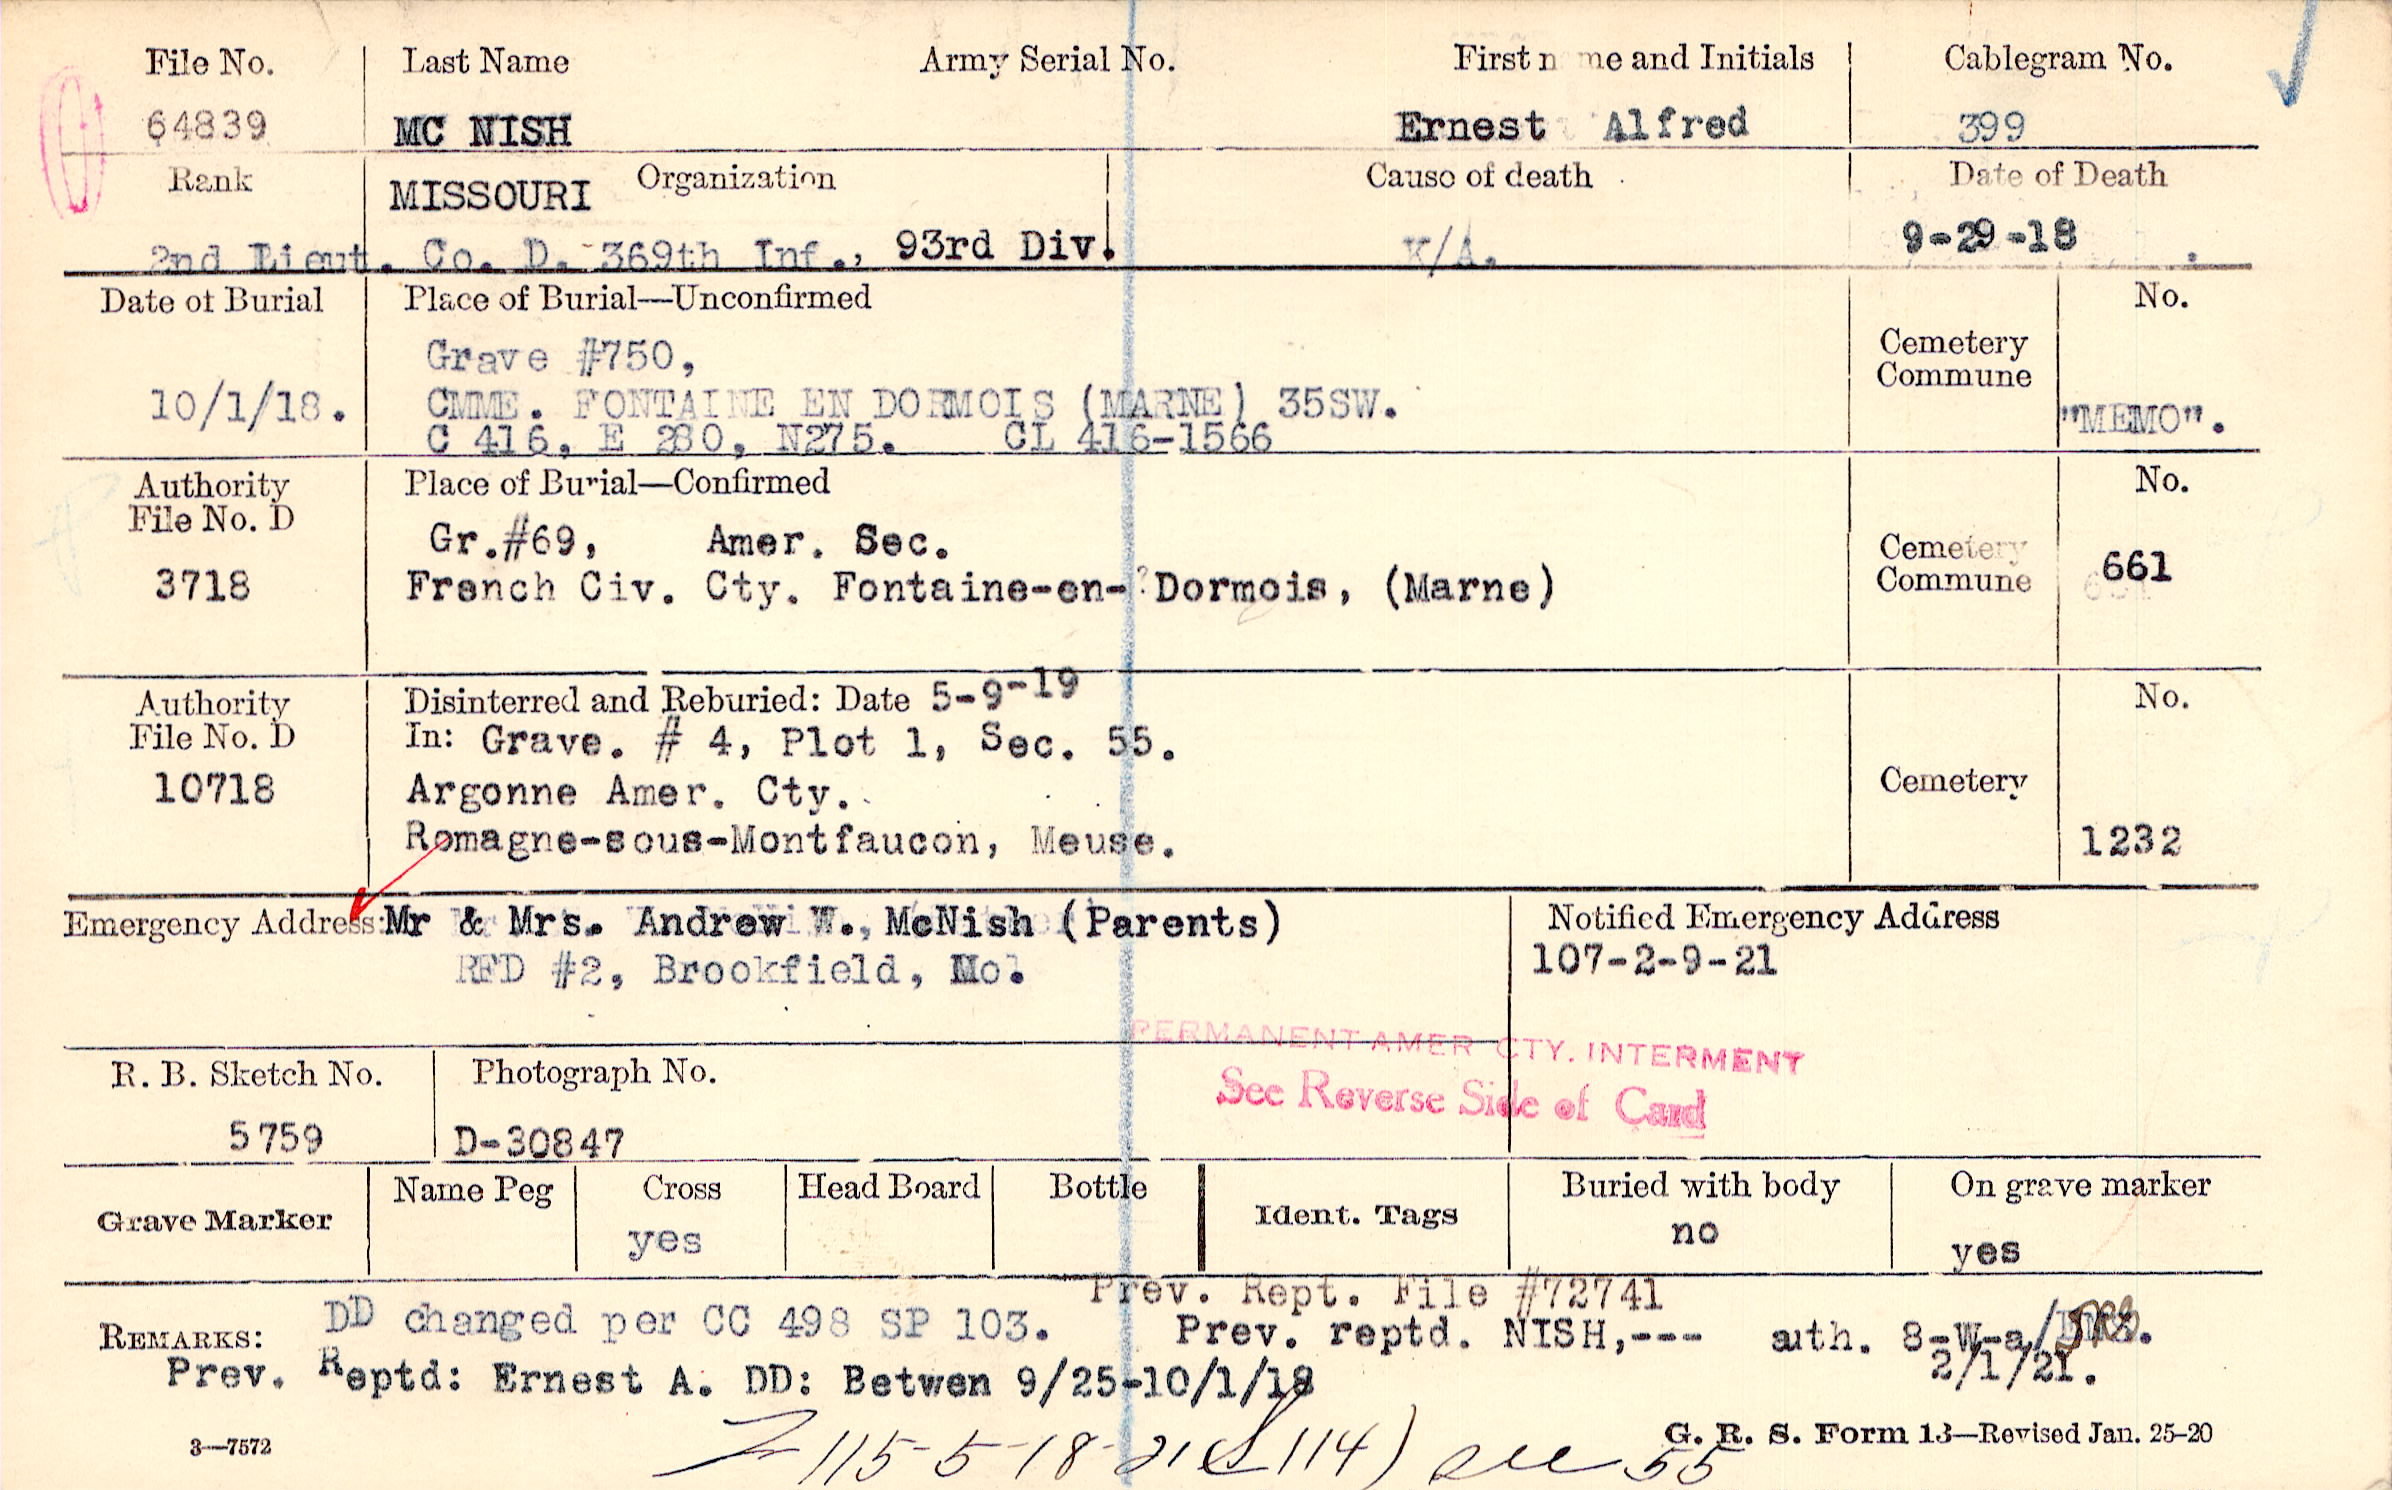 File No. Last Name Army Serial No. First n me and Initials Cablegram No.
64839 MC NISH Ernest Alfred 399
Rank MISSOURI Organization Cause of death Date of Death
2nd Lieut. Co. D. 369th Inf., 93rd Div. K/A. 9-29-18
Date of Burial Place of Burial—Unconfirmed No.
Grave #750,
Cemetery
Commune
10/1/18. CMME. FONTAINE EN DORMOIS (MARNE) 35SW. "MEMO".
C 416, E 280, N275. CL 416-1566
Authority Place of Burial—Confirmed No.
File No. D
Gr.#69, Amer. Sec.
Cemetery
3718 French Civ. Cty. Fontaine-en- Dormois, (Marne) Commune 661
Authority Disinterred and Reburied: Date 5-9-19 No.
File No. D In: Grave. # 4, Plot 1, Sec. 55.
10718 Argonne Amer. Cty. Cemetery
Romagne-sous-Montfaucon, Meuse. 1232
Emergency Address: Mr & Mrs. Andrew W., McNish (Parents) Notified Emergency Address
RFD #2, Brookfield, Mo. 107-2-9-21
PERMANENT AMER CTY. INTERMENT
See Reverse Side of Card
R. B. Sketch No. Photograph No.
5759 D-30847
Grave Marker Name Peg Cross Head Board Bottle Ident. Tags Buried with body On grave marker
yes no yes
Prev. Rept. File #72741
REMARKS: DD changed per CC 498 SP 103. Prev. reptd. NISH,--- auth. 8-W-a/
2/1/21.
Prev. Reptd: Ernest A. DD: Betwen 9/25-10/1/18
3—7572 G. R. S. Form 13—Revised Jan. 25-20
115-5-18-21 (S 114) see 55